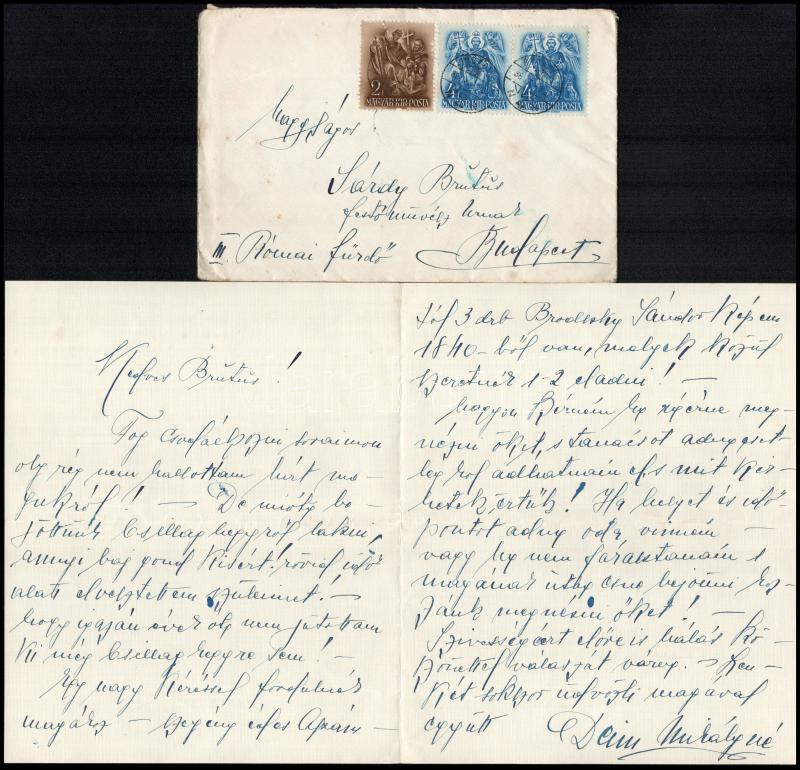 2
MAGYAR·KIR·POSTA
4
MAGYAR·KIR·POSTA
4
MAGYAR·KIR·POSTA
Nagyságos
Sárdy Brutus
festőművész Urnak
III. Római fürdő Budapest
Kedves Brutus!
Fog csodálkozni soraimon
oly rég nem hallottam hírt ma-
gukról! — De mióta be-
jöttünk Csillaghegyről lakni,
annyi baj gond kisért! rövid idő
alatt elvesztettem szüleimet. —
hogy igazán évek óta nem jutottam
ki még Csillaghegyre sem! —
Egy nagy kéréssel fordulnék
magához — szegény édes Apám-
tól 3 drb Brodszky Sándor képem
1840-ből van, melyek közül
szeretnék 1-2 eladni! —
Nagyon kérném ha eljönne meg-
nézni őket, s tanácsot adna eset-
leg hol adhatnám el s mit kér-
hetek értük! Ha helyet és idő-
pontot adna oda vinném —
vagy ha nem fárasztanám
magának útba esne bejönni hoz-
zánk megnézni őket! —
Szivességért előre is hálás kö-
szönettel válaszát várva. —
sokszor üdvözli magával
együtt Deim Mihályné